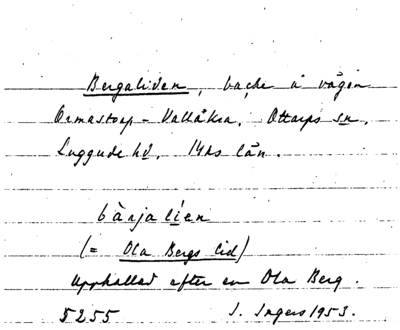 Bergaliden, backe å vägen
Ormastorp - Vallåkra. Ottarps sn.
Luggude hd. Mhs län.
bàrjalíen
(= Ola Bergs lid)
Upphallad efter en Ola Berg.
5255 I. Ingers 1953.